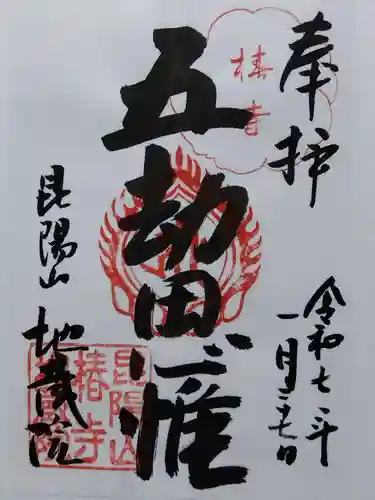 奉拝
椿寺
令和七年
一月二十七日
五劫思惟
昆陽山
地蔵院
昆陽山
椿寺
地蔵院